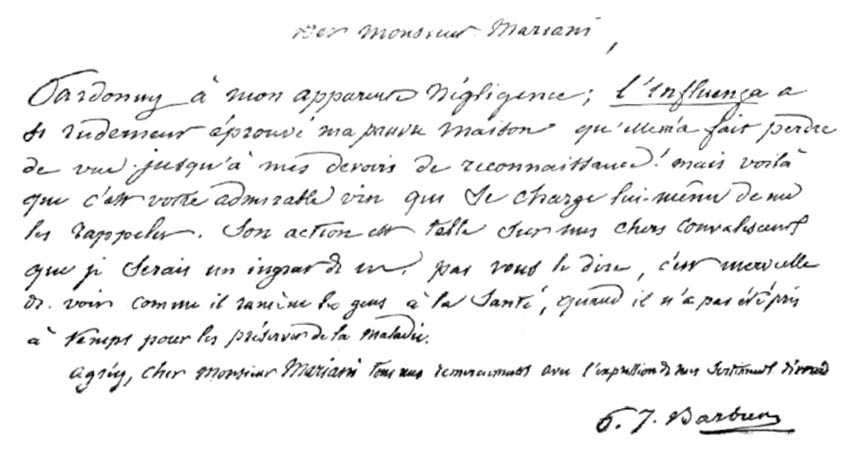 Cher Monsieur Mariani,
Pardonnez à mon apparente négligence; l'Influenza a
si rudement éprouvé ma pauvre maison qu'elle m'a fait perdre
de vue jusqu'à mes devoirs de reconnaissance! mais voilà
que c'est votre admirable vin qui se charge lui-même de me
les rappeler. Son action est telle sur mes chers convalescents
que je serais un ingrat de ne pas vous le dire, c'est merveille
de voir comme il ramène les gens à la santé, quand il n'a pas été pris
à temps pour les préserver de la maladie.
Agréez, cher Monsieur Mariani tous mes remerciements avec l'expression de mes sentiments dévoués
P. J. Barbier